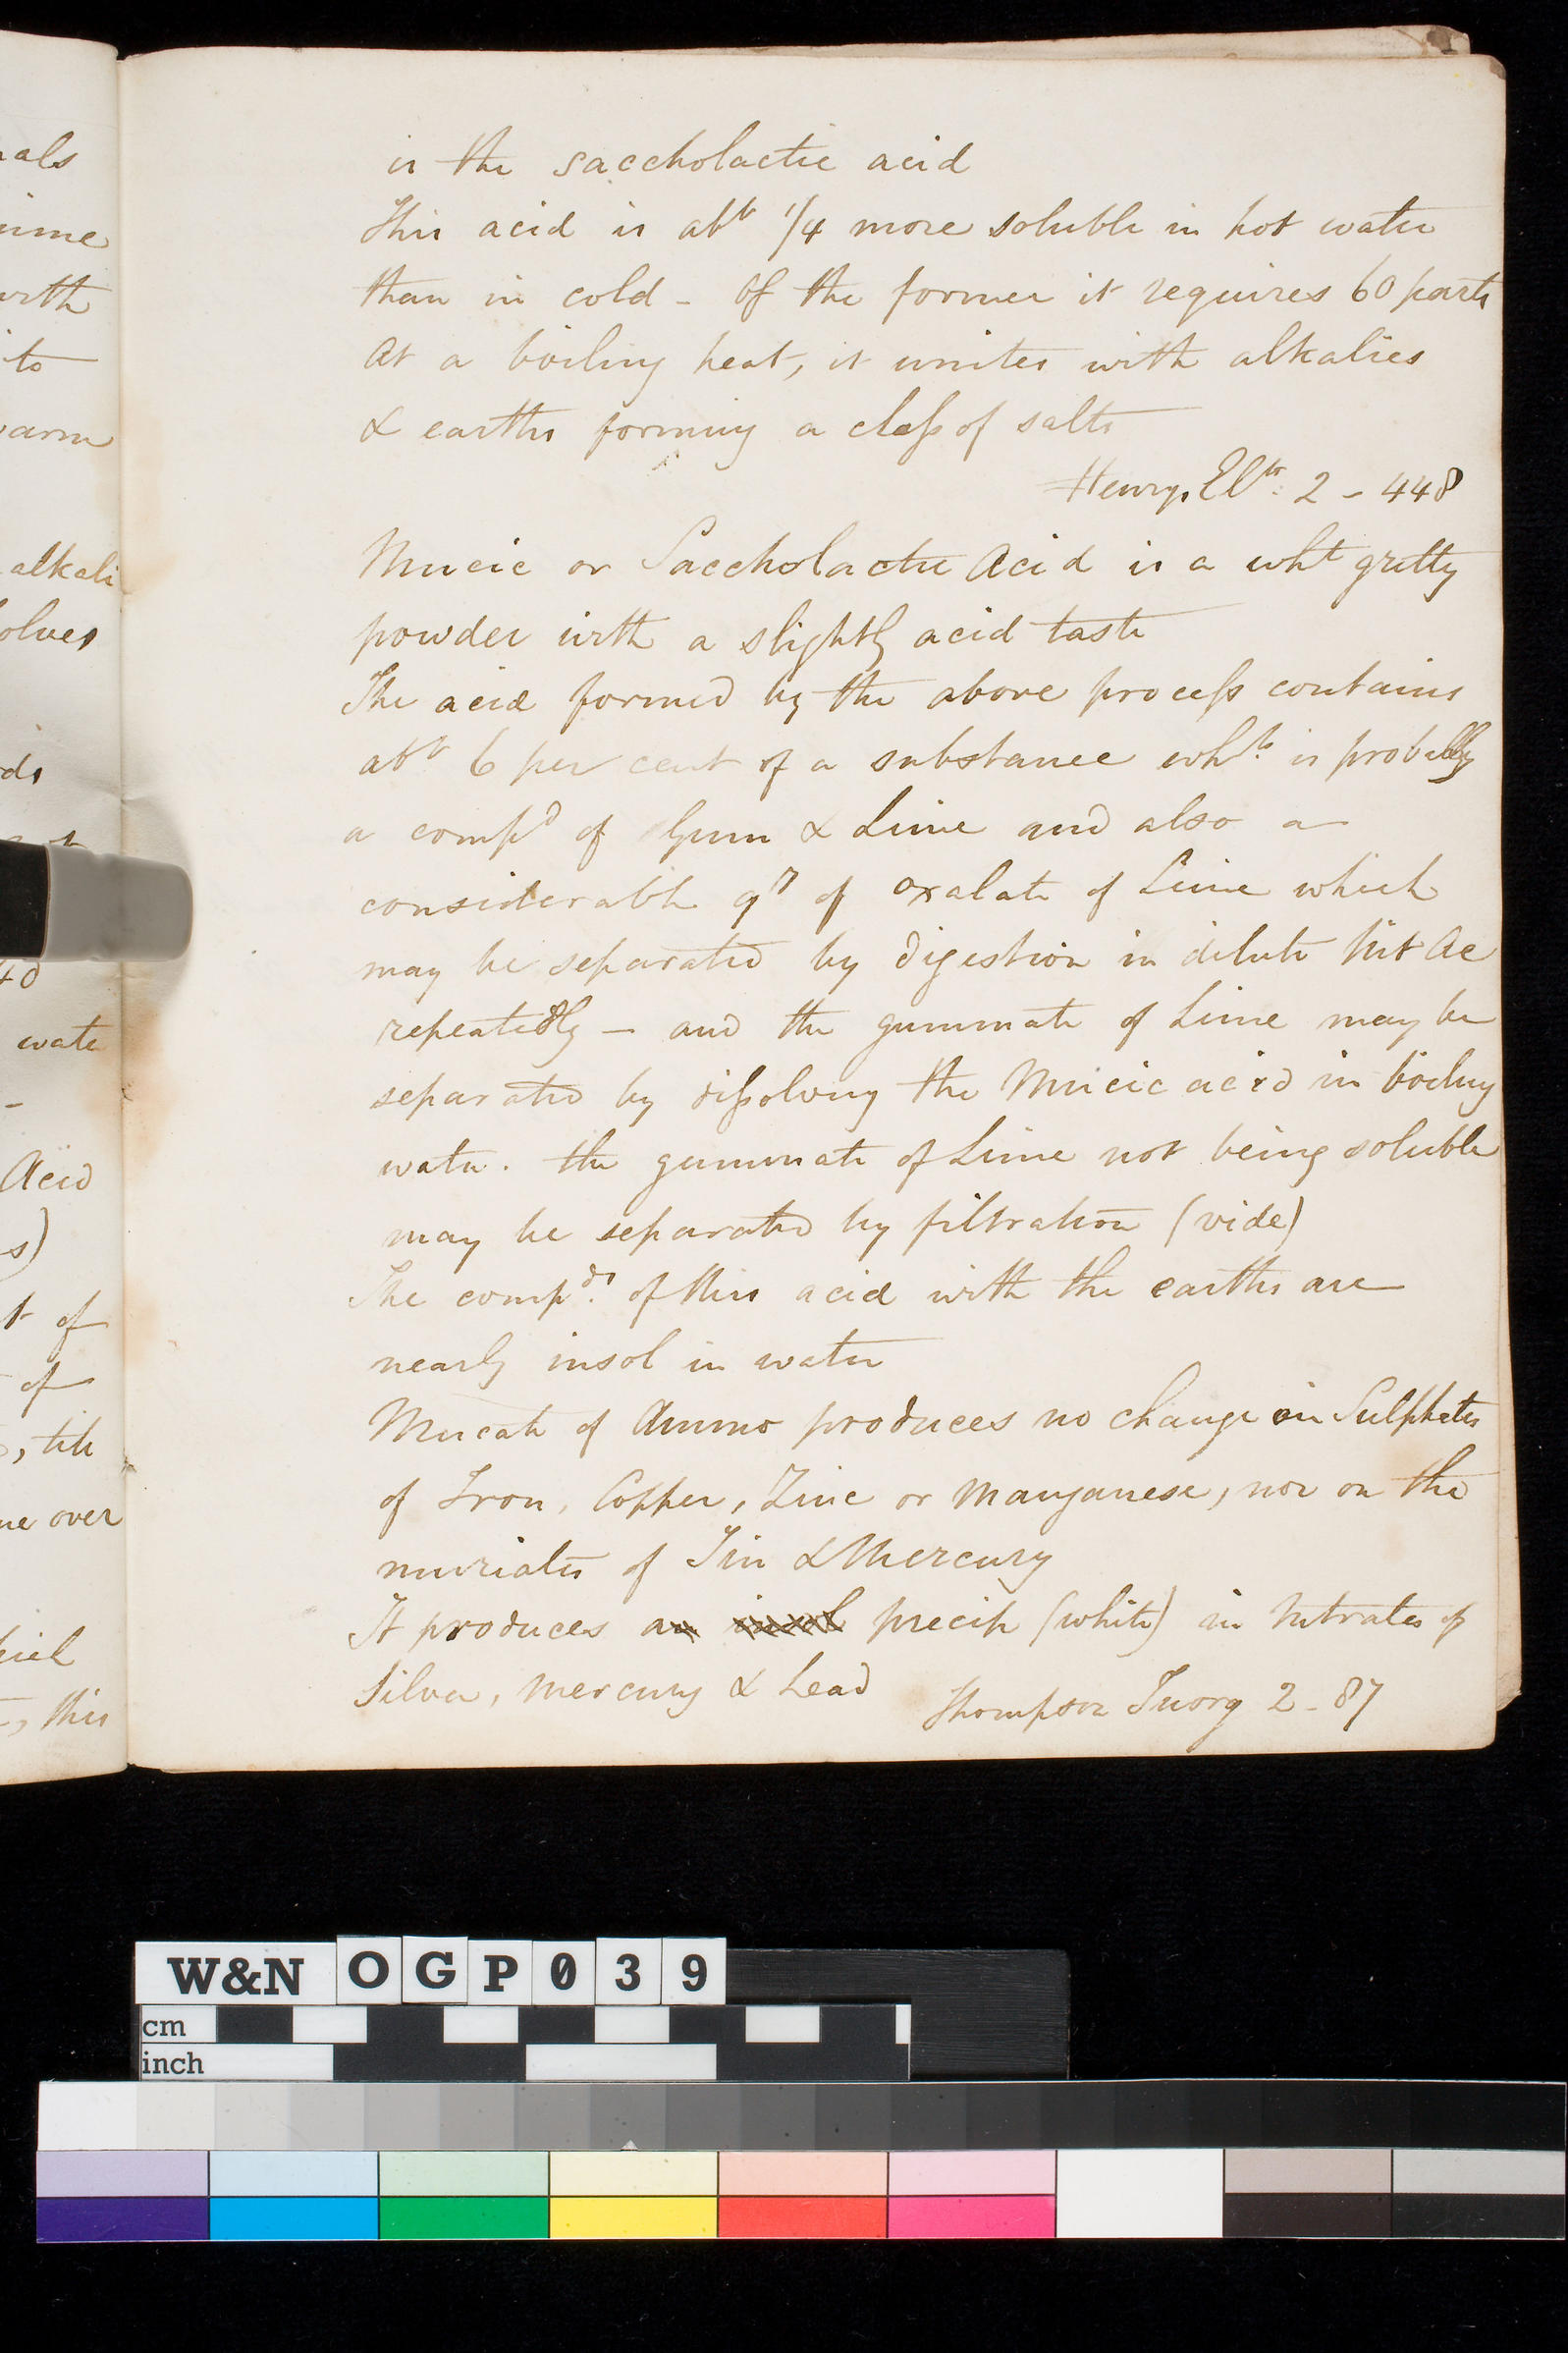 is the saccholactic acid
This acid is abt 1/4 more soluble in hot water
than in cold - Of the former it requires 60 parts
At a boiling heat, it unites with alkalies
& earths forming a class of salts
Henrys Elts. 2 - 448
Mucic or Saccholactic Acid is a wht gritty
powder with a slightly acid taste
The acid formed by the above process contains
abt 6 per cent of a substance whh. is probably
a compd of Gum & Lime and also a
considerable qy of oxalate of Lime which
may be separated by digestion in dilute Nit Ac
repeatedly - and the gummate of Lime may be
separated by dissolving the Mucic acid in boiling
water. the gummate of Lime not being soluble
may be separated by filtration (vide)
The compds. of this acid with the earths are
nearly insol in water
Mucate of Ammo produces no change in Sulphates
of Iron, Copper, Zinc or Manganese, nor on the
muriates of Tin & Mercury
It produces an insol precip (white) in Nitrates of
Silver, Mercury & Lead
Thompson Inorg 2 - 87
als
ime
with
to
warm
alkali
olves
ds
40
wate
-
Acid
s)
t of
of
, till
ne over
, this
W&N OGP039
cm
inch